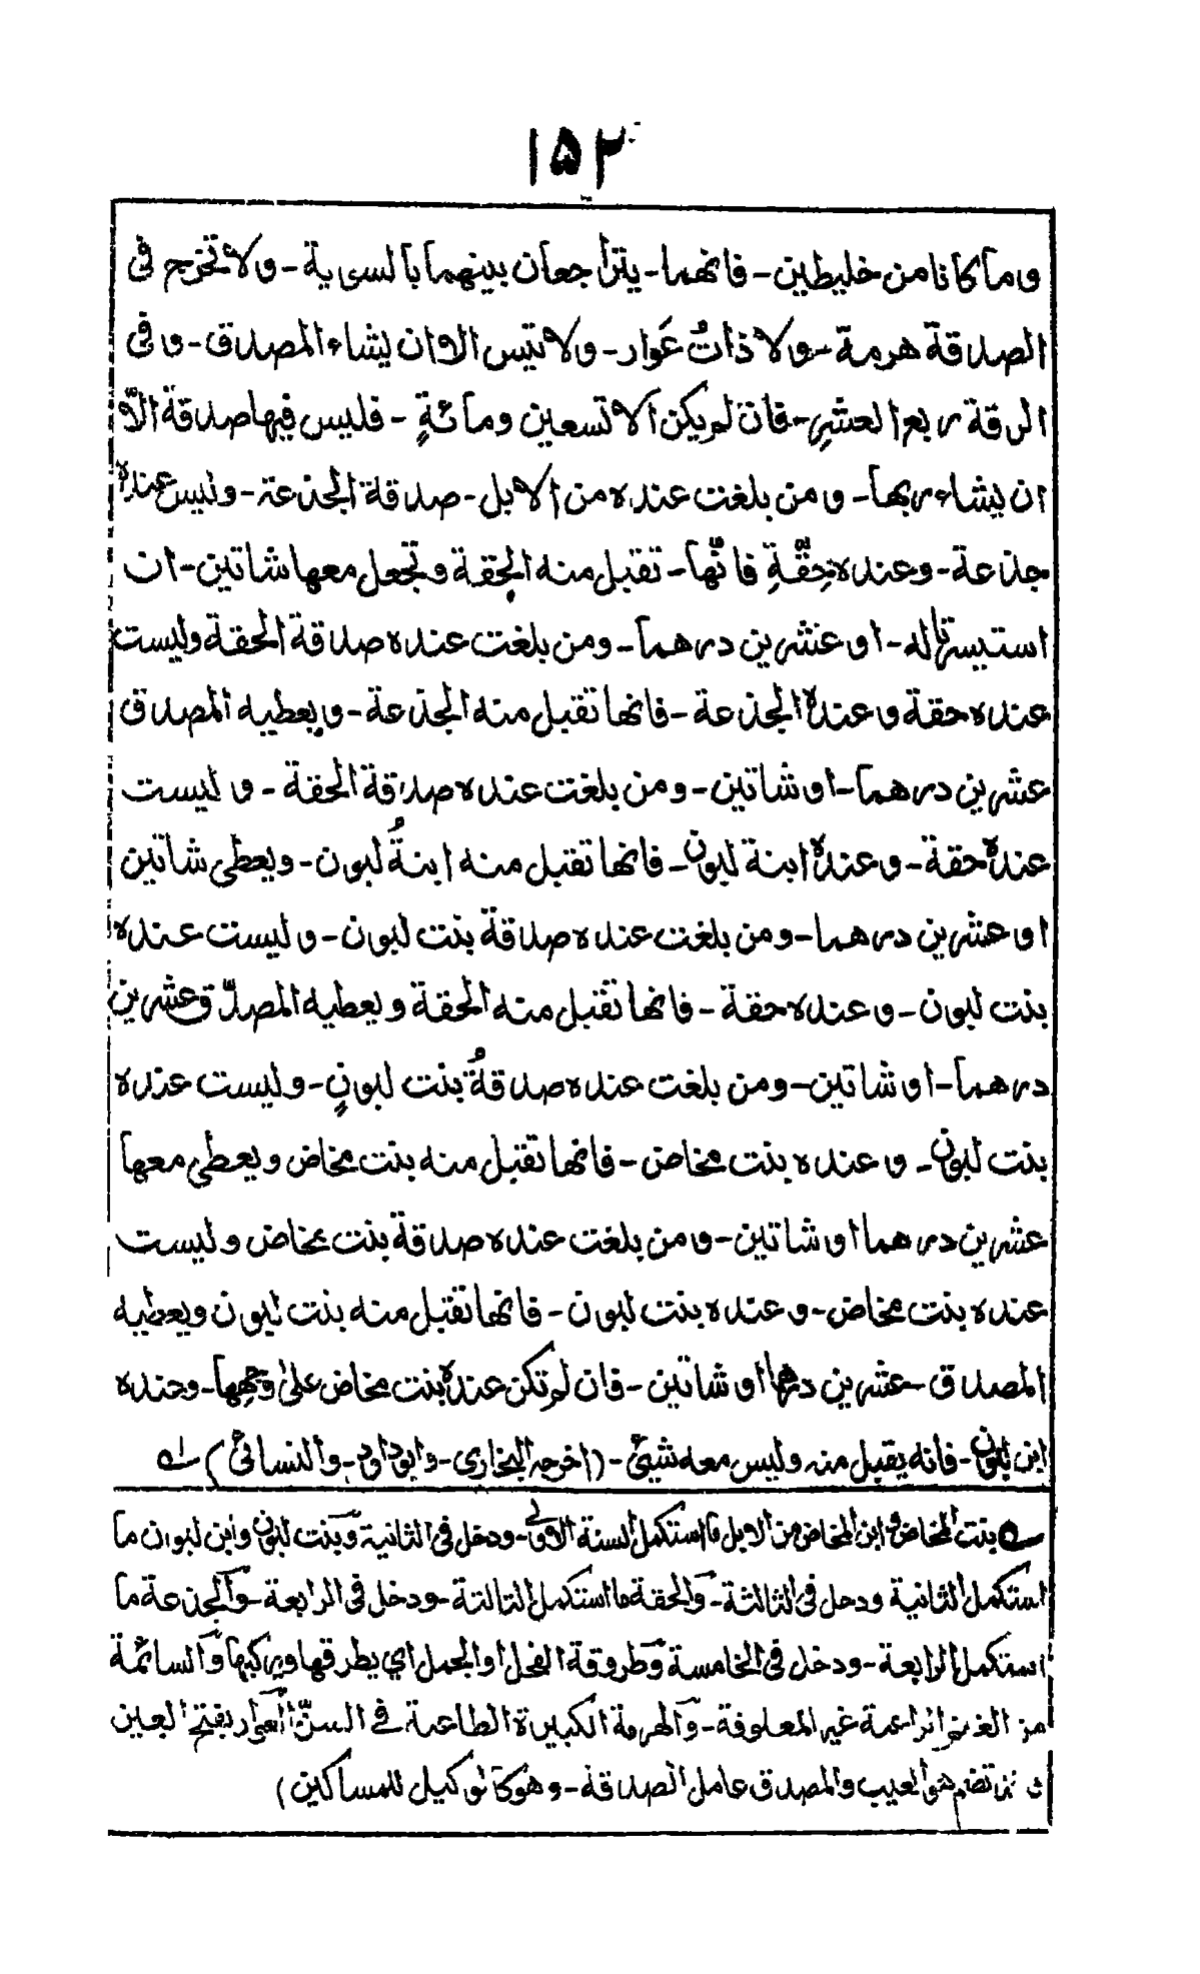 ١٥٢
وما كانا من خليطين - فانهما - يتراجعان بينهما بالسوية - ولا تخرج فى
الصدقة هرمة - ولا ذاتُ عَوار - ولا تيس الا ان يشاء المصدق - و فى
الرقة ربع العشرِ - فان لم يكن الا تسعين ومائةٍ - فليس فيها صدقة الّا
ان يشاء ربها - و من بلغت عنده من الابل - صدقة الجذعة - وليس عنده
جذعة - وعنده حِقّةٍ فانّها - تقبل منه الحِقة وتجعل معها شاتين - ان
استيسرتا له - او عشرين درهما - ومن بلغت عنده صدقة الحقة وليست
عنده حقة و عنده الجذعة - فانها تقبل منه الجذعة - و يعطيه المصدق
عشرين درهما - او شاتين - ومن بلغت عنده صدقة الحقة - و ليست
عنده حقة - و عنده ابنة لبون - فانها تقبل منه ابنةُ لبون - ويعطى شاتين
او عشرين درهما - ومن بلغت عنده صدقة بنت لبون - و ليست عنده
بنت لبون - و عنده حقة - فانها تقبل منه الحقة ويعطيه المصدّق عشرين
درهما - او شاتين - ومن بلغت عنده صدقةُ بنت لبونٍ - وليست عنده
بنت لبون - و عنده بنت مخاض - فانها تقبل منه بنت مخاض ويعطى معها
عشرين درهما او شاتين - و من بلغت عنده صدقة بنت مخاض وليست
عنده بنت مخاض - و عنده بنت لبون - فانها تقبل منه بنت لبون ويعطيه
المصدق - عشرين درهما او شاتين - فان لم تكن عنده بنت مخاض على وجهها - وعنده
ابن لبون - فانه يقبل منه وليس معه شيئ - (اخرجه البخارى - وابوداود - والنسائى)
بنت المخاض و ابن المخاض من الابل ما استكمل السنة الاولى - ودخل فى الثانية وبنت لبون وابن لبون ما
استكمل الثانية ودخل فى الثالثة - والحقة ما استكمل الثالثة - ودخل فى الرابعة - والجذعة ما
استكمل الرابعة - ودخل فى الخامسة وطروقة الفحل او الجمل اي يطرقها ويركبها والسائمة
من الغنم الراعية غير المعلوفة - والهرمة الكبيرة الطاعنة في السنّ العوار بفتح العين
تضم هو العيب والمصدق عامل الصدقة - وهو كالوكيل للمساكين)